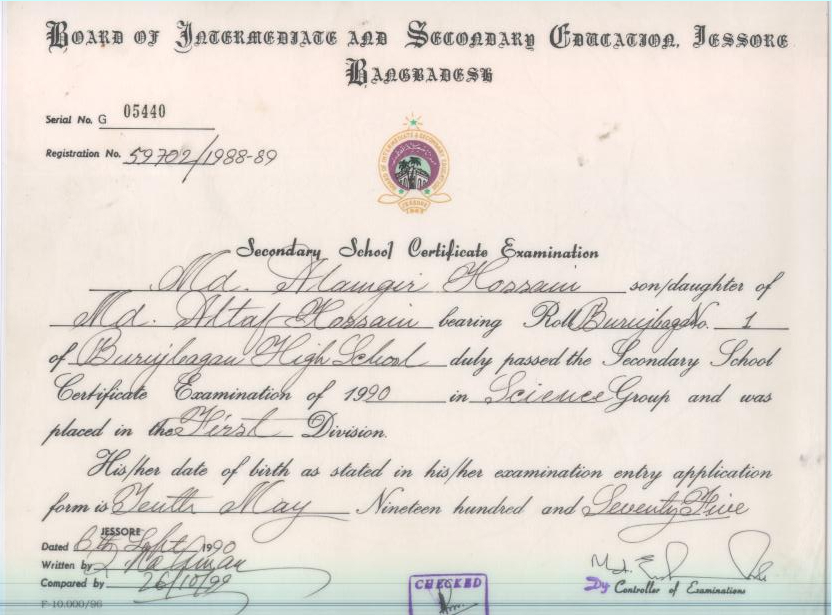 BOARD OF INTERMEDIATE AND SECONDARY EDUCATION, JESSORE
BANGLADESH
Serial No. G 05440
Registration No. 59702/1988-89
BOARD OF INTERMEDIATE & SECONDARY EDUCATION
JESSORE
1963
Secondary School Certificate Examination
Md. Alamgir Hossain son/daughter of
Md. Altaf Hossain bearing Roll Burujbagan No. 1
of Burujbagan High School duly passed the Secondary School
Certificate Examination of 1990 in Science Group and was
placed in the First Division.
His/her date of birth as stated in his/her examination entry application
form is Tenth May Nineteen hundred and Seventy Five
JESSORE
Dated 6th Sept 1990
Written by
Compared by 26/10/99
CHECKED
Dy Controller of Examinations
F-10.000/98